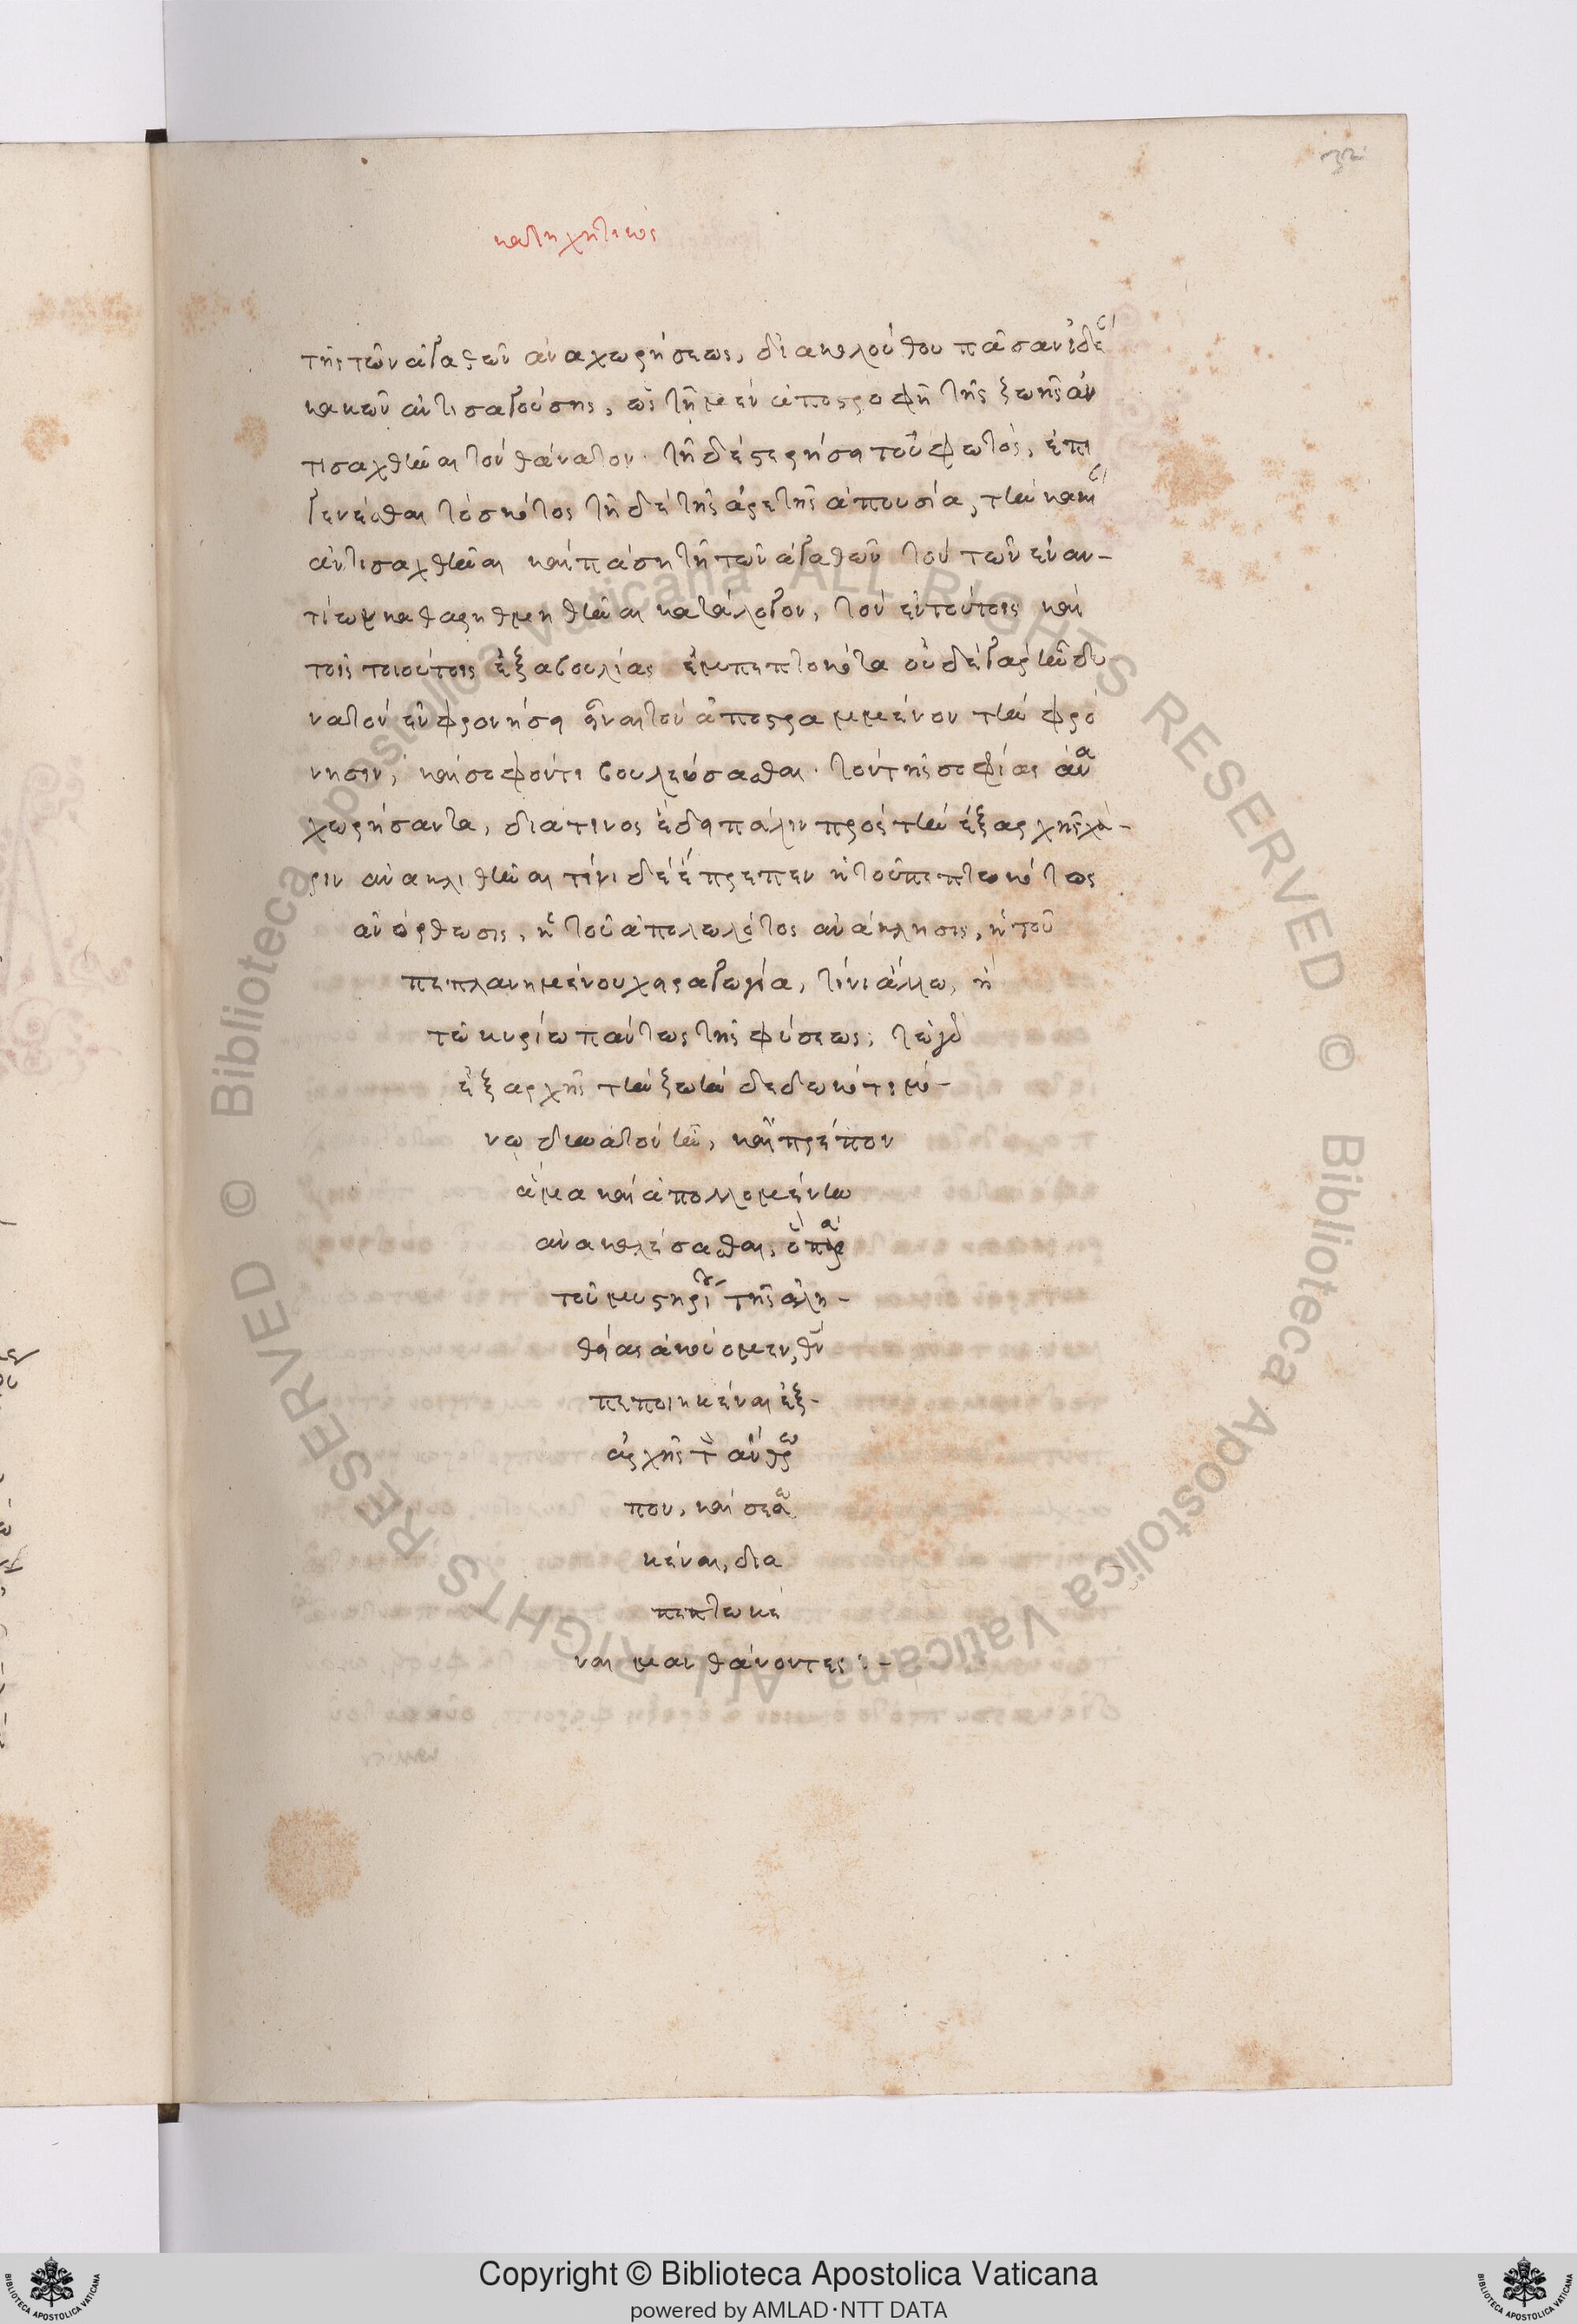 32
κατηχητικὸς
τῆς τῶν ἀγαθῶν ἀναχωρήσεως, δι ἀκολούθου πᾶσαν ἰδέαν
κακῶν ἀντισαγούσης, ὡς τῆ μὲν ἀποστροφῆ τῆς ζωῆς ἀν
τισαχθῆναι τὸν θάνατον. τῆ δὲ στερήσει τοῦ φωτὸς, ἐπι
γενέσθαι τὸ σκότος τῆ δὲ τῆς ἀρετῆς ἀπουσία, τὴν κακίαν
ἀντισαχθῆναι καὶ πάση τῆ τῶν ἀγαθῶν τὸν τῶν ἐναν-
τίων καθαρηθμηθῆναι κατάλογον, τὸν ἐν τούτοις καὶ
τοῖς τοιούτοις ἐξ ἀβουλίας ἐμπεπτωκότα οὐδὲ γὰρ ἦν δυ
νατὸν ἐν φρονήσει εἶναι τὸν ἀπεστραμμένον τὴν φρό
νησιν, καὶ σοφόν τι βουλεύσασθαι. τὸν τῆς σοφίας ἀνα
χωρήσαντα, διὰ τίνος ἔδει πάλιν πρὸς τὴν ἐξαρχῆς χά-
ριν ἀνακλιθῆναι τίνι δὲ ἔπρεπεν ἡ τοῦ πεπτωκότος
ἀνόρθωσις, ἢ τοῦ ἀπολωλότος ἀνάκλησις, ἢ τοῦ
πεπλανημένου χειραγωγία, τίνι ἄλλω, ἢ
τῶ κυρίω πάντως τῆς φύσεως; τῶ γὰρ
ἐξαρχῆς τὴν ζωὴν δεδωκότι μό-
νω δυνατὸν ἦν, καὶ πρέπον
ἅμα καὶ ἀπολλομένην
ἀνακαλέσασθαι, ὃ παρὰ
τοῦ μυστηρίου τῆς ἀλη-
θείας ἀκούομεν, θν
πεποιηκέναι ἐξ-
ἀρχῆς τὸν ἄνθρω
που, καὶ σεσω
κέναι, δια
πεπτωκέ
ναι μανθάνοντες :-
Copyright © Biblioteca Apostolica Vaticana
powered by AMLAD·NTT DATA